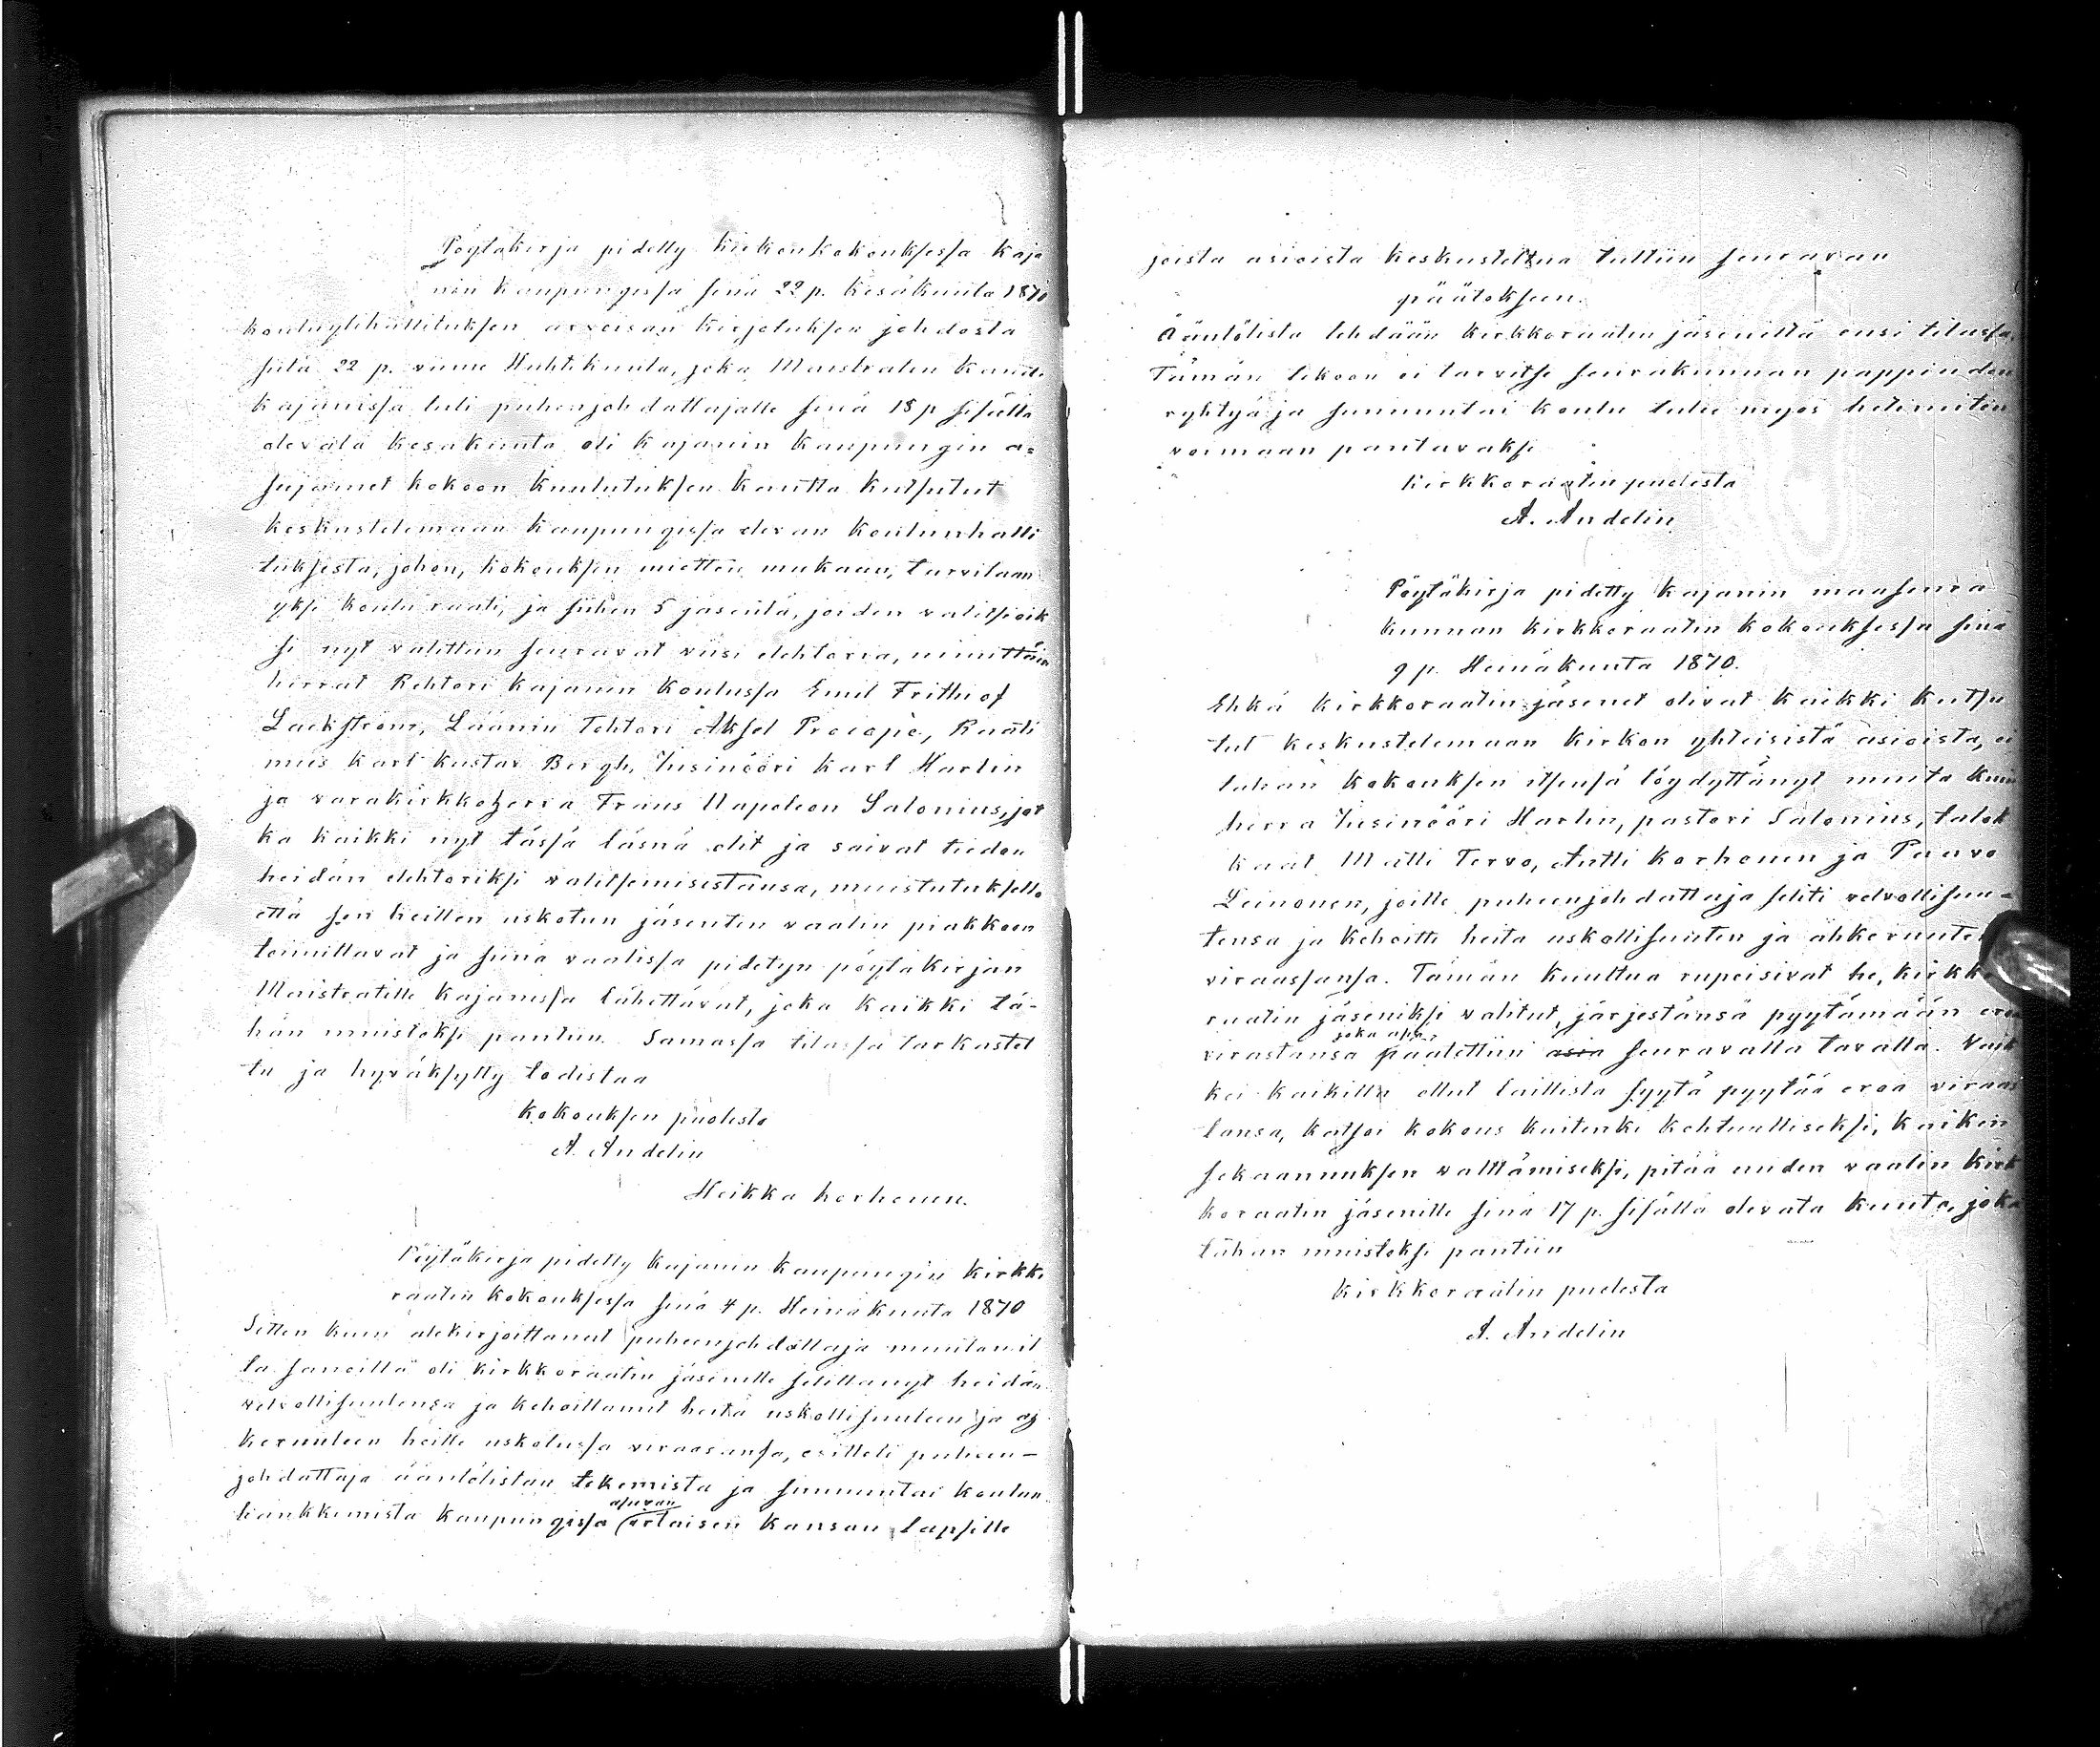 Pöytäkirja pidetty kirkonkokouksessa Kaja
nin kaupungissa sinä 22 p. Kesäkuuta 1870
kouluylihallituksen arvoisan kirjoituksen johdosta
siitä 22 p. viime Huhtikuuta, joka Maistratin kautta
Kajanissa tuli puhenjohdattajalle sinä 18 p sisällä
olevata kesäkuuta oli Kajanin Kaupungin a=
sujamet kokoon kuulutuksen kautta kutsutut
keskustelemaan kaupungissa olevan koulunhalli
tuksesta, johon, kokouksen mietten mukaan, tarvitaan
yksi koulu raati, ja siihen 5 jäsentä, joiden valitsioik
si nyt valittiin seuravat viisi elehtoria, nimittäin
herrat Rehtori Kajanin koulussa Emil Frithiof
Lackström, Läänin Tohtori Aksel Procopè, Raati
mies Karl Kustav Bergh, Insinööri Karl Harlin
ja varakirkkoherra Frans Napoleon Salonius, jot
ka kaikki nyt tässä läsnä olit ja saivat tiedon
heidän elehtoriksi valitsemisestansa, muistutuksella
että sen heillen uskotun jäsenten vaalin piakkoon
toimittavat ja siinä vaalissa pidetyn pöytäkirjan
Maistratille Kajanissa lähettävät, joka kaikki tä-
hän muistoksi pantiin. Samassa tilassa tarkastet
tu ja hyväksytty todistaa
Kokouksen puolesta
A. Andelin
Heikka korhonen.
Pöytäkirja pidetty Kajanin kaupungin kirkko
raatin kokouksessa sinä 4 p. Heinäkuuta 1870
Sitten kuin alekirjoittanut puheenjohdattaja muutamil
la sanoilla oli kirkkoraatin jäsenille selittänyt heidän
velvollisuutensa ja kehoittanut heitä uskollisuuteen ja ah
keruuteen heille uskotussa viraasansa, esitteli puheen-
johdattaja ääntölistan tekemistä ja sunnuntai koulun
hankkimista kaupungissa (asuvan irtaisen kansan lapsille
joista asioista keskusteltua tultiin seuravaan
päätökseen.
Ääntölista tehdään kirkkoraatin jäseniltä ensi tilassa,
Tämän tekoon ei tarvitse seurakunnan pappien den
ryhtyä ja sunnuntai koulu tulee myös hetimiten
voimaan pantavaksi
kirkkoraatin puolesta
A. Andelin
Pöytäkirja pidetty Kajanin maaseura
kunnan kirkkoraatin kokouksessa sinä
9 p. Heinäkuuta 1870.
Ehkä kirkkoraatin jäsenet olivat kaikki kutsu
tut keskustelemaan kirkon yhteisistä asioista, ei
tähän kokouksen itsensä löydyttänyt muita kuin
herra Insinööri Harlin, pastori Salonius, talok
kaat Matti Tervo, Antti Korhonen ja Paavo
Leinonen, joille puheenjohdattaja seliti velvollisuu-
tensa ja kehoitti heitä uskollisuuten ja ahkeruuteen
viraassansa. Tämän kuultua rupeisivat he, kirkko
raatin jäseniksi valitut, järjestänsä pyytämään eroa
virastansa joka asia päätettiin asia seuravalla tavalla. Vaik
kei kaikilla ollut laillista syytä pyytää eroa viraas
tansa, katsoi kokous kuitenki kohtuulliseksi, kaiken
sekaannuksen välttämiseksi, pitää uuden vaalin kirk
koraatin jäsenille sinä 17 p. sisällä olevata kuuta, joka
tähän muistoksi pantiin
kirkkoraatin puolesta
A. Andelin